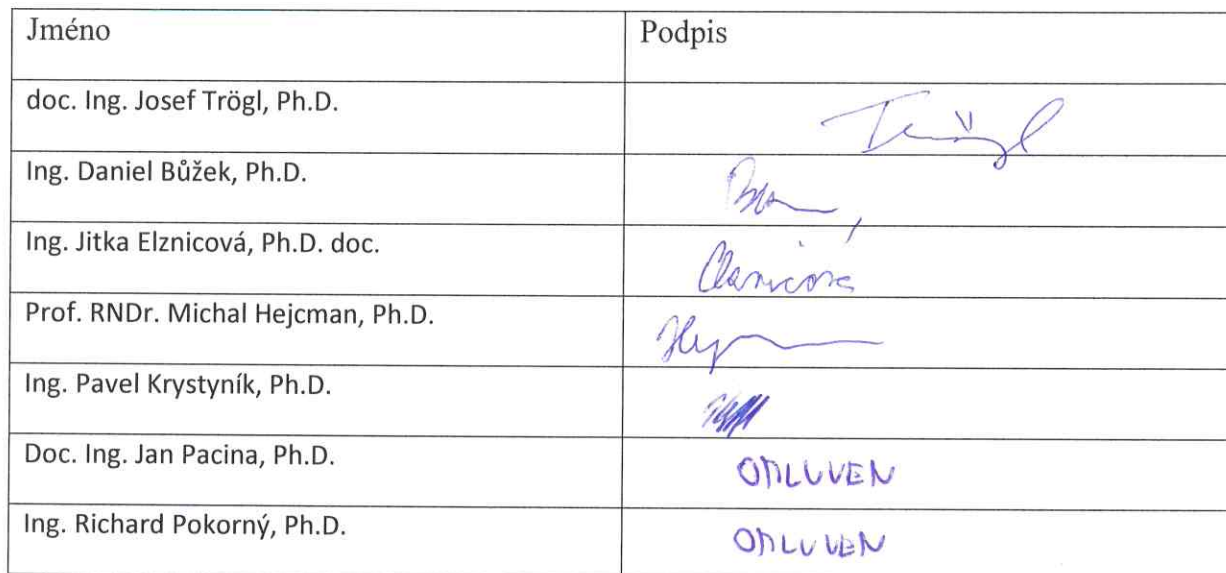 Jméno Podpis
doc. Ing. Josef Trögl, Ph.D.
Ing. Daniel Bůžek, Ph.D.
Ing. Jitka Elznicová, Ph.D. doc.
Prof. RNDr. Michal Hejcman, Ph.D.
Ing. Pavel Krystyník, Ph.D.
Doc. Ing. Jan Pacina, Ph.D. OMLUVEN
Ing. Richard Pokorný, Ph.D. OMLUVEN